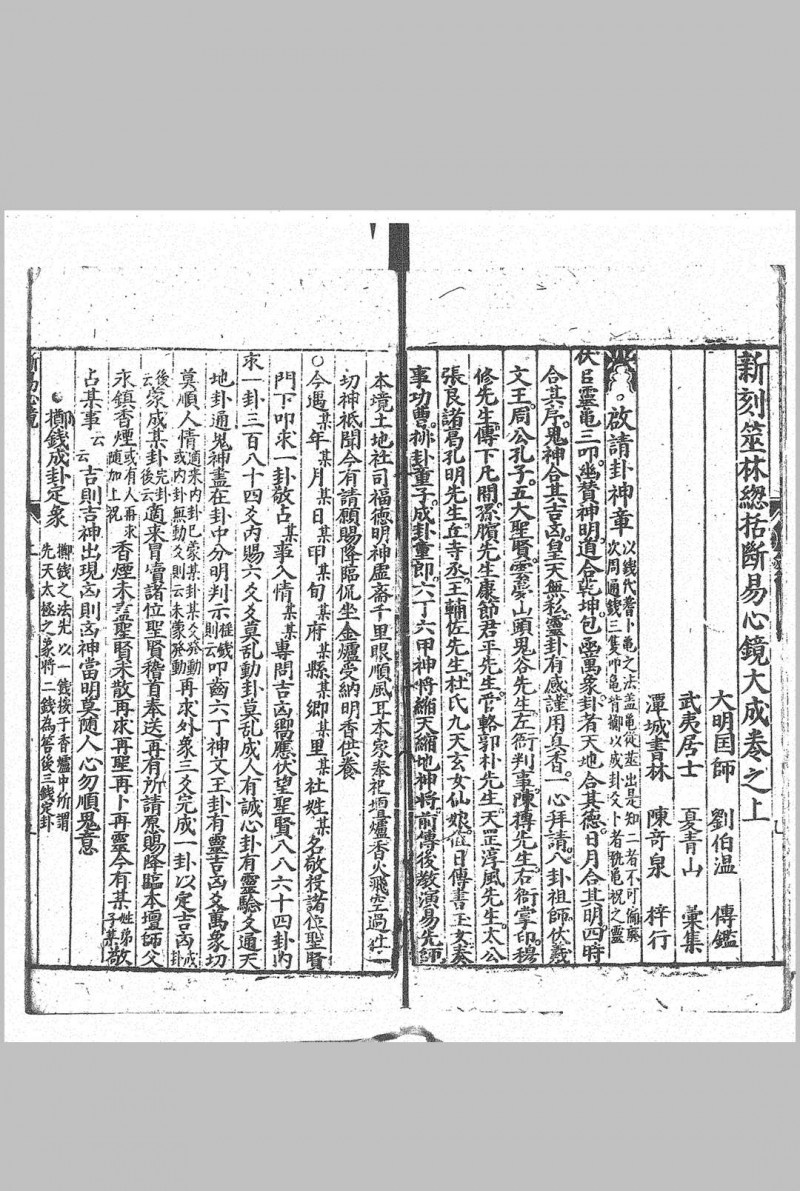 新刻筮林緫括斷易心鏡大成卷之上
大明囯師 劉伯温 傳鑑
武夷居士 夏青山 彙集
潭城書林 陳竒泉 梓行
啟請卦神章 以錢代蓍卜亀之法盖亀從筮出是知二者不可偏廢
次周通錢三隻叩亀背擲以成卦爻卜者執亀祝之靈
伏㠯靈亀三叩幽賛神明道合乾坤包壘萬象卦者天地合其德日月合其明四時
合其序鬼神合其吉凶皇天無私靈卦有感謹用真香一心拜請八卦祖師伏羲
文王周公孔子五大聖賢雲夢山頭鬼谷先生左衙判事陳摶先生右衙掌印楊
修先生傳下凡間孫臏先生康節君平先生管輅郭朴先生天罡淳風先生太公
張良諸葛孔明先生丘寺丞王輔佐先生杜氏九天玄女仙娘值日傳書玉女奏
事功曹排卦童子成卦童郎六丁六甲神將縮天縮地神將前傳後教演易先師
本境土地社司福德明神虚斋千里眼順風耳本家奉祀壇爐香火飛空過往一
切神祇聞今有請願賜降臨侃坐金爐受納明香供養
○今遇某年某月某日某甲某旬某府某縣某鄉某里某社姓某名敬投諸位聖賢
門下叩求一卦敬占某事入情某專問吉凶響應伏望聖賢八八六十四卦内
求一卦三百八十四爻内賜六爻爻莫乱動卦莫乱成人有誠心卦有靈驗爻通天
地卦通鬼神盡在卦中分明判示擲錢則云叩齒六丁神文王卦有靈吉凶爻萬象切
莫順人情適来内卦已蒙某卦某爻發動或内卦無動爻則云未蒙發動再求外象三爻完成一卦以定吉凶成卦
後云蒙成某卦完卦後云適来冒凟諸位聖賢稽首奉送再有所請原賜降臨本壇師父
永鎮香煙或有人再求随加上祝香煙未盡聖賢未散再求再聖再卜再靈今有某姓弟子某敬
占某事云云吉則吉神出現凶則凶神當明莫随人心勿順鬼意
擲錢成卦定象 擲錢之法先以一錢挨于香爐中所謂
先天太極之象將二錢為筶後三錢定卦
新易心鏡